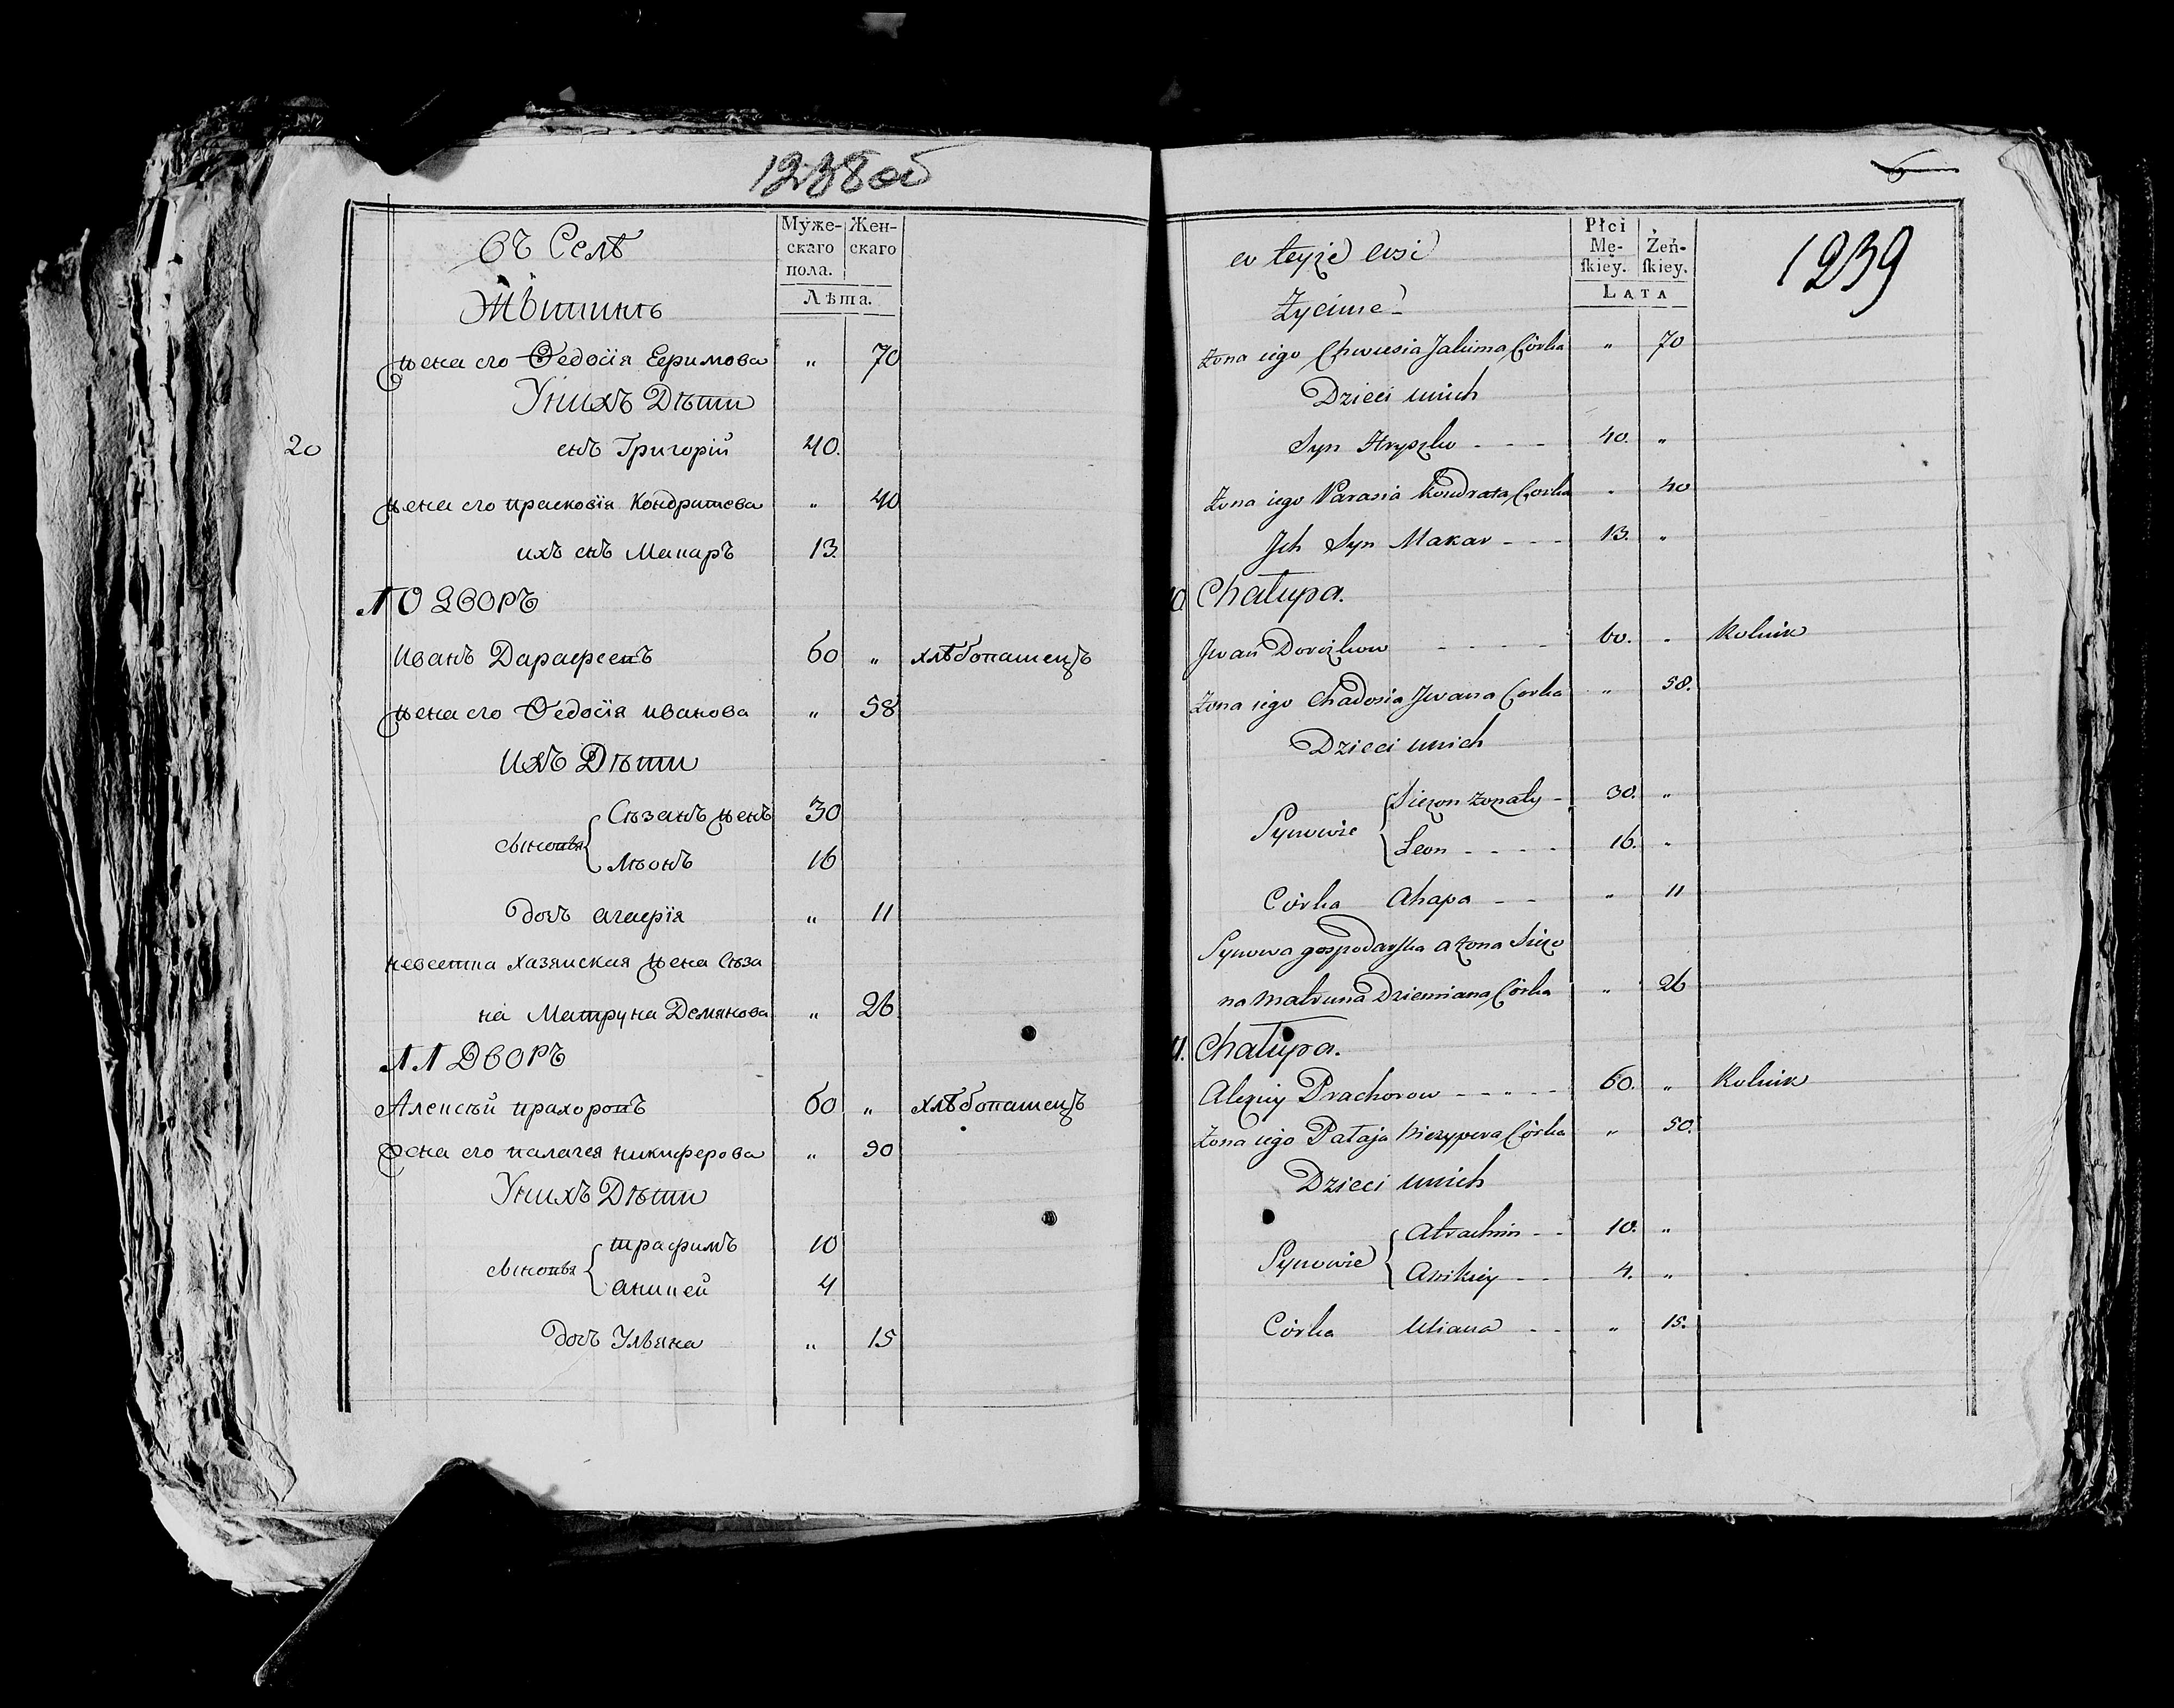 1238об
въ Селѣ
Муже-
скаго
пола.
Жен-
скаго
Лѣта.
Жытинъ
жена его Федосія Ефимова „ 70
У нихъ Дѣти
20
снъ Григорій 40.
жена его прасковія Кондратева „ 40
ихъ снъ Макаръ 13.
10 ДВОРЪ
Иванъ Дарафеевъ 60 „ хлѣбопашецъ
жена его Федосія иванова „ 58
ИХЪ Дѣти
сыновья { Сѣзанъ женъ 30
Лѣонъ 16
дочь агафія „ 11
невестка хазяиская жена Сѣза
на Матруна Демянова „ 26.
11 ДВОРЪ
Алексѣй прахоровъ 60 „ хлѣбопашецъ
жена его палагея никиферова „ 50
У нихъ Дѣти
сыновья { трафимъ 10
аникей 4
дочь Ульяна „ 15
1239
w teyże wsi
Płci
Mę-
skiey.
Żeń-
skiey.
LATA
Życinie
Żona iego Jakima Córka „ 70
Dzieci unich
Syn Hryszko - - - 40. „
Żona iego Parasia Kondrata Corka „ 40
Jch Syn Makar - - - 13. „
10 Chałupa.
Jwan 60. „ Rolnik
Żona iego Chadosia Jwana Corka „ 58.
Dzieci unich
Synowie { Siezon żonaty - 30. „
Leon - - - - 16. „
Córka Ahapa - - „ 11
Synowa gospodarska a żona Siezo
na Matruna Dziemiana Córka „ 26
11. Chałupa.
Alexiey Prachorow - - - - - 60. „ Rolnik
Żona iego Pałaja Córka „ 50.
Dzieci unich
Synowie { Atrachim - - 10. „
Anikiey - - 4. „
Córka Uliana - - „ 15.